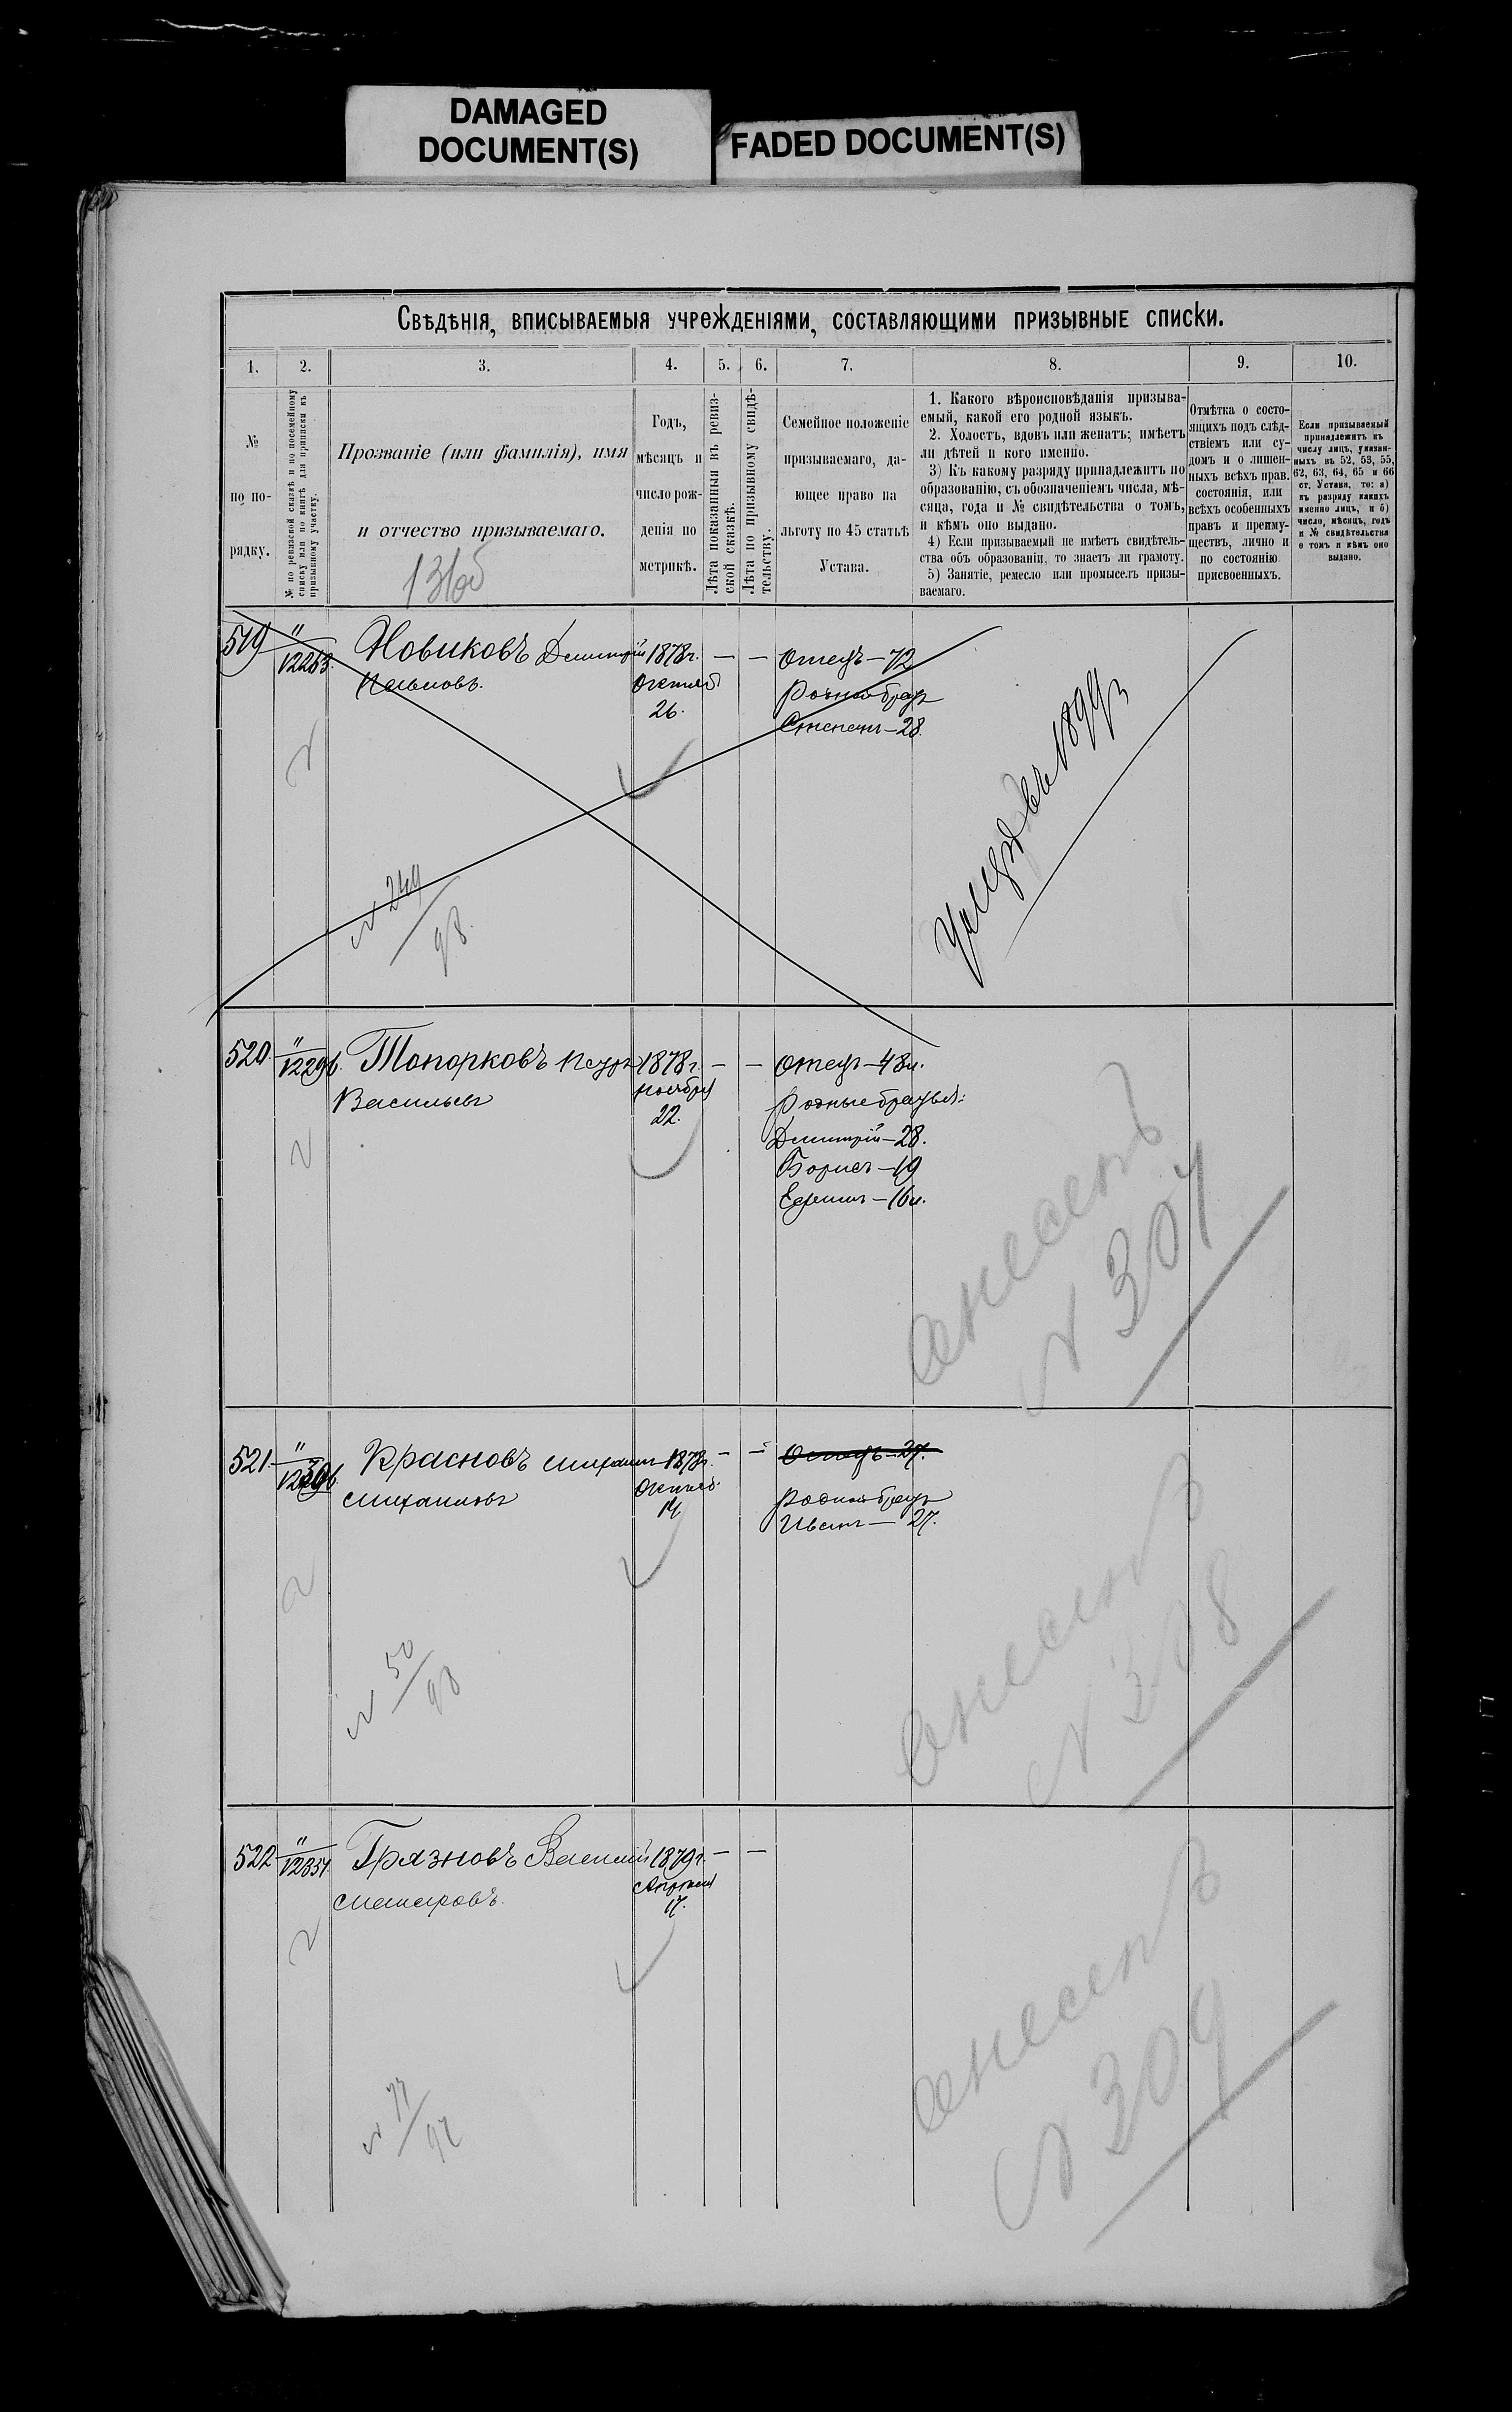 DAMAGED
DOCUMENT(S)
FADED DOCUMENT(S)
Свѣдѣнія, вписываемыя учрежденіями, составляющими призывные списки.
1. 2. 3. 4. 5. 6. 7. 8. 9. 10.
№
по по-
рядку.
№ по ревизской сказкѣ и по посемейному
списку или по книгѣ для приписки къ
призывному участку.
Прозваніе (или фамилія), имя
и отчество призываемаго.
Годъ,
мѣсяцъ и
число рож-
денія по
метрикѣ.
Лѣта показанныя въ ревиз-
ской сказкѣ.
Лѣта по призывному свидѣ-
тельству.
Семейное положеніе
призываемаго, да-
ющее право на
льготу по 45 статьѣ
Устава.
1. Какого вѣроисповѣданія призыва-
емый, какой его родной языкъ.
2. Холостъ, вдовъ или женатъ; имѣетъ
ли дѣтей и кого именно.
3) Къ какому разряду принадлежитъ по
образованію, съ обозначеніемъ числа, мѣ-
сяца, года и № свидѣтельства о томъ,
и кѣмъ оно выдано.
4) Если призываемый не имѣетъ свидѣтель-
ства объ образованіи, то знаетъ ли грамоту.
5) Занятіе, ремесло или промыселъ призы-
ваемаго.
Отмѣтка о состо-
ящихъ подъ слѣд-
ствіемъ или су-
домъ и о лишен-
ныхъ всѣхъ прав.
состоянія, или
всѣхъ особенныхъ
правъ и преиму-
ществъ, лично и
по состоянію
присвоенныхъ.
Если призываемый
принадлежитъ къ
числу лицъ, указан-
ныхъ въ 52, 53, 55,
62, 63, 64, 65 и 66
ст. Устава, то: а)
къ разряду какихъ
именно лицъ, и б)
число, мѣсяцъ, годъ
и № свидѣтельства
о томъ и кѣмъ оно
выдано.
519 " Новиковъ Дмитрій 1878г. — — Отецъ — 72
12263.
Октяб
26.
Родной братъ
Степанъ — 28.
№ 249
98.
520. " Топорковъ Петръ 1878г. — — Отецъ — 48л.
Васильевъ
ноября
22.
Родные братья:
Дмитрій — 28.
Борисъ — 19
Ефимъ — 16л.
Внесенъ
№ 307
521. " Красновъ Михаилъ 1878г. — — Отецъ — 27.
Михаиловъ
Октяб.
14
Родной братъ
Иванъ — 27.
№ 50
98
Внесенъ
№ 308
522 " Грязновъ Василій 1879г. — —
Апрѣля
17.
Внесенъ
№ 309